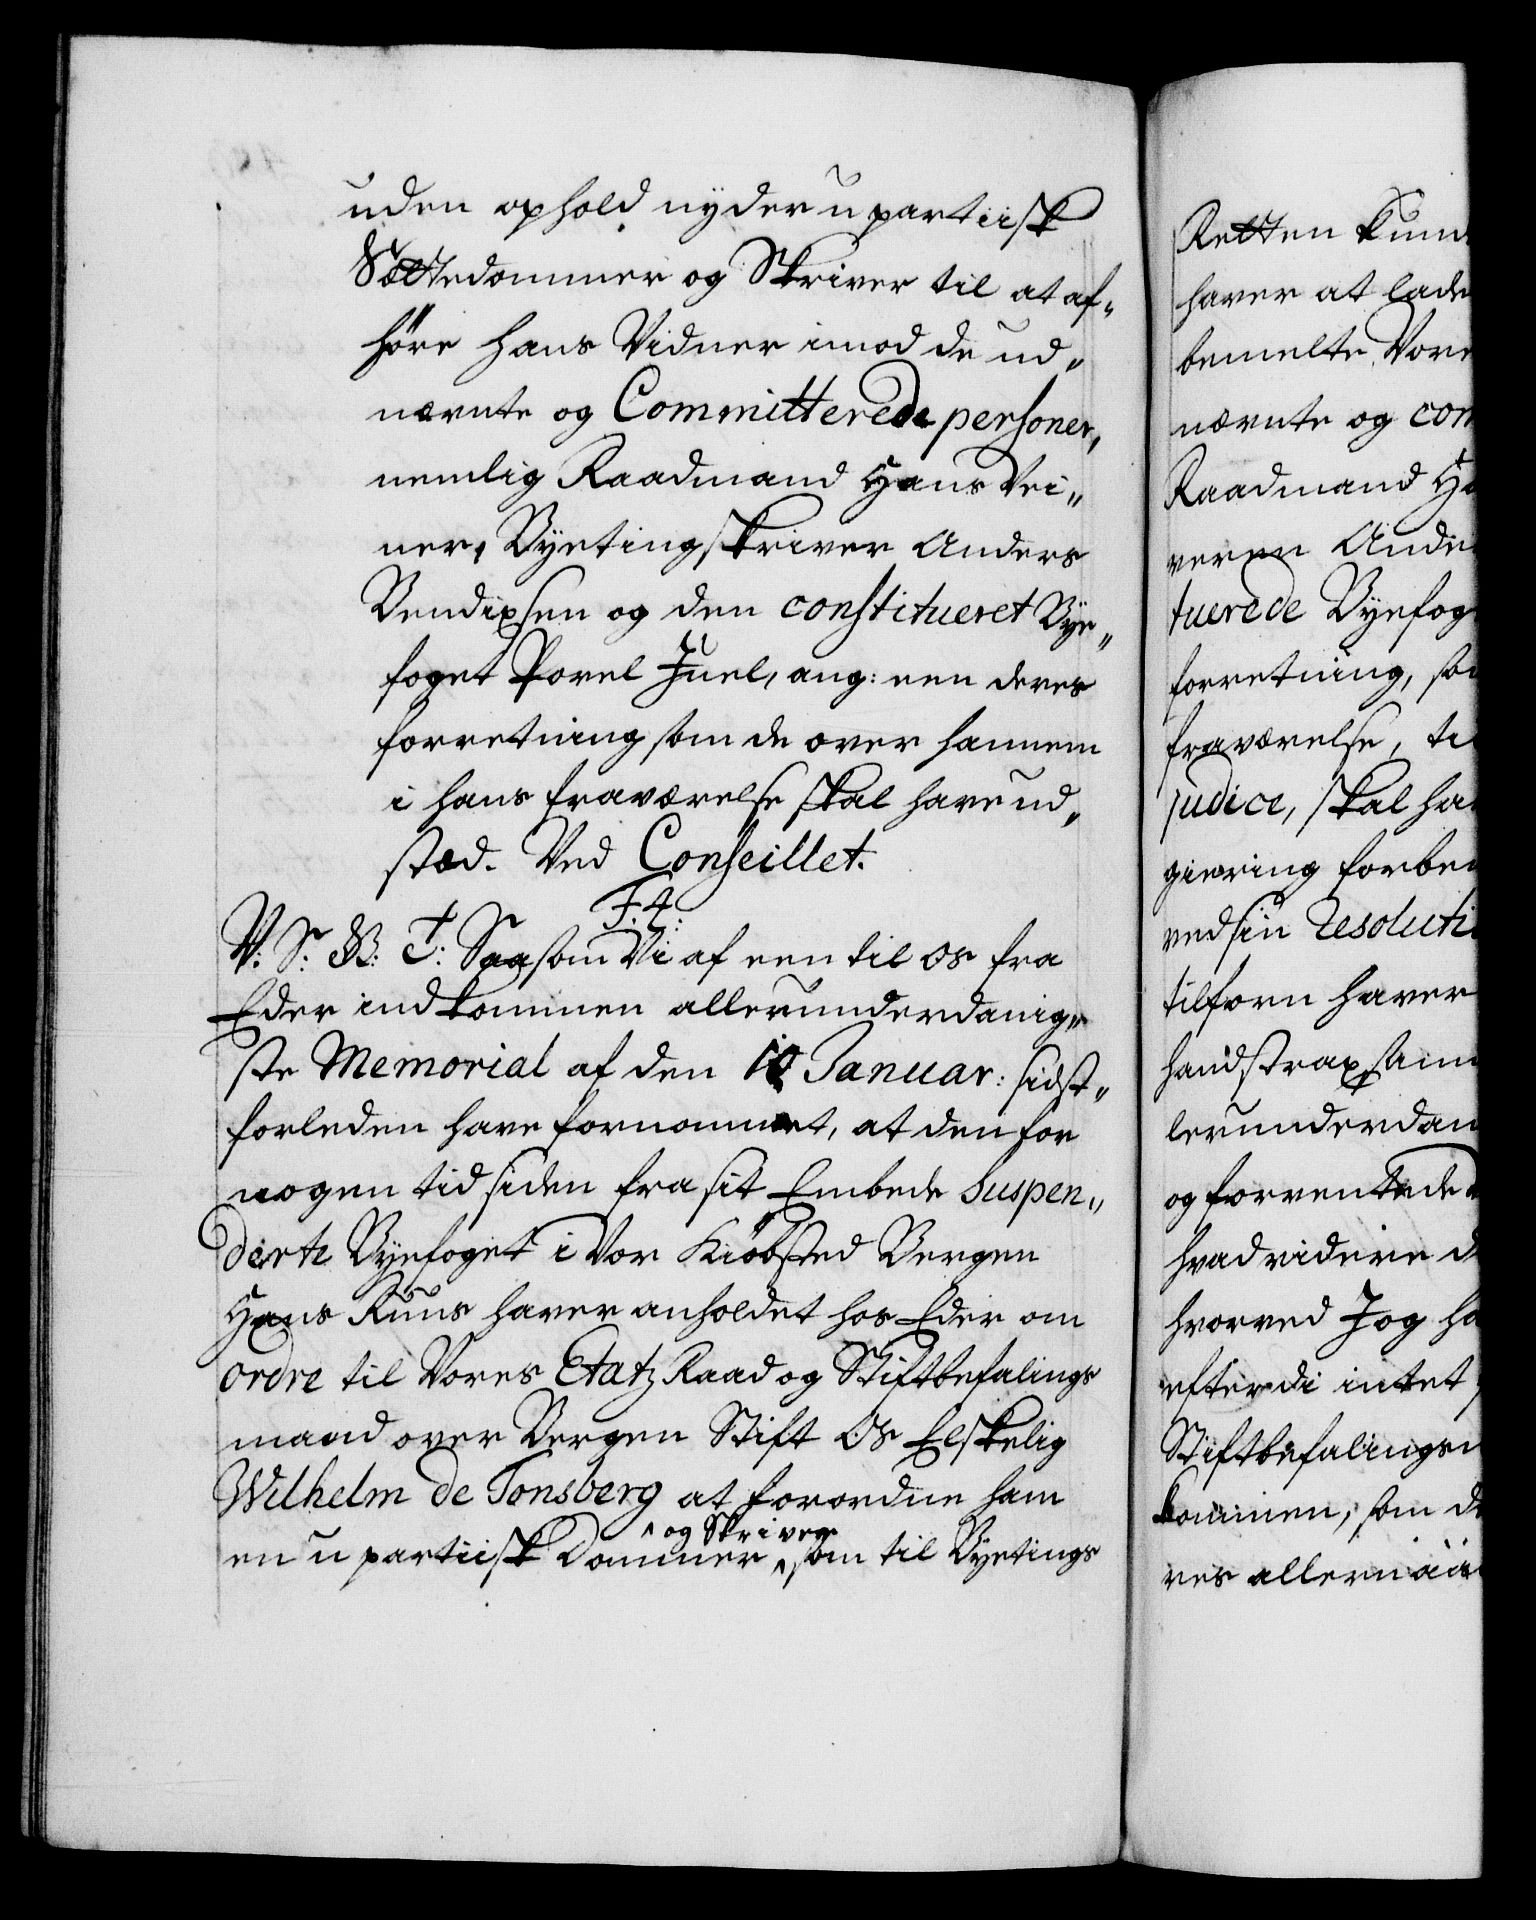 uden ophold nyder u partiisk
Sættedommer og Skriver til at af„
höre hans Vidner imod de ud„
nævnte og Committerede personer,
nemlig Raadmand Hans Wei„
ner, Byetingskriver Anders
Bendixsen og den constitueret Bye„
foget Povel Juel, ang: een deres
forretning som de over hannem
i hans fraværelse skal have ud„
stæd. Ved Conseillet.
F. 4.
V: S: G: B: T: Saasom Vi af een til os fra
Eder indkommen allerunderdanig„
ste Memorial af den 10 Januar: sidst„
forleden have fornommet, at den for
nogen tid siden fra sit Embede Suspen„
derte Byefoget i Vor Kiöbsted Bergen
Hans Ruus haver anholdet hos Eder om
ordre til Vores Etatz Raad og Stiftbefalings
mand over Bergen Stift Os Elskelig
Wilhelm de Tonsberg at forordne ham
og Skriver
en u partiisk Dommer som til Byetings
Retten kund
haver at lade
bemelte Vore
nævnte og com
Raadmand Ha
veren Ander
tuerede Byefog
forretning, som
fraværelse, ti
judice, skal hav
giering forben
ved sin resoluti
tilforn haver
hand strax sam
lerunderdan
og forventede
hvad videre d
hvorved Jeg ha
efterdi intet
Stiftbefalingsm
kommen, som de
res allernaa